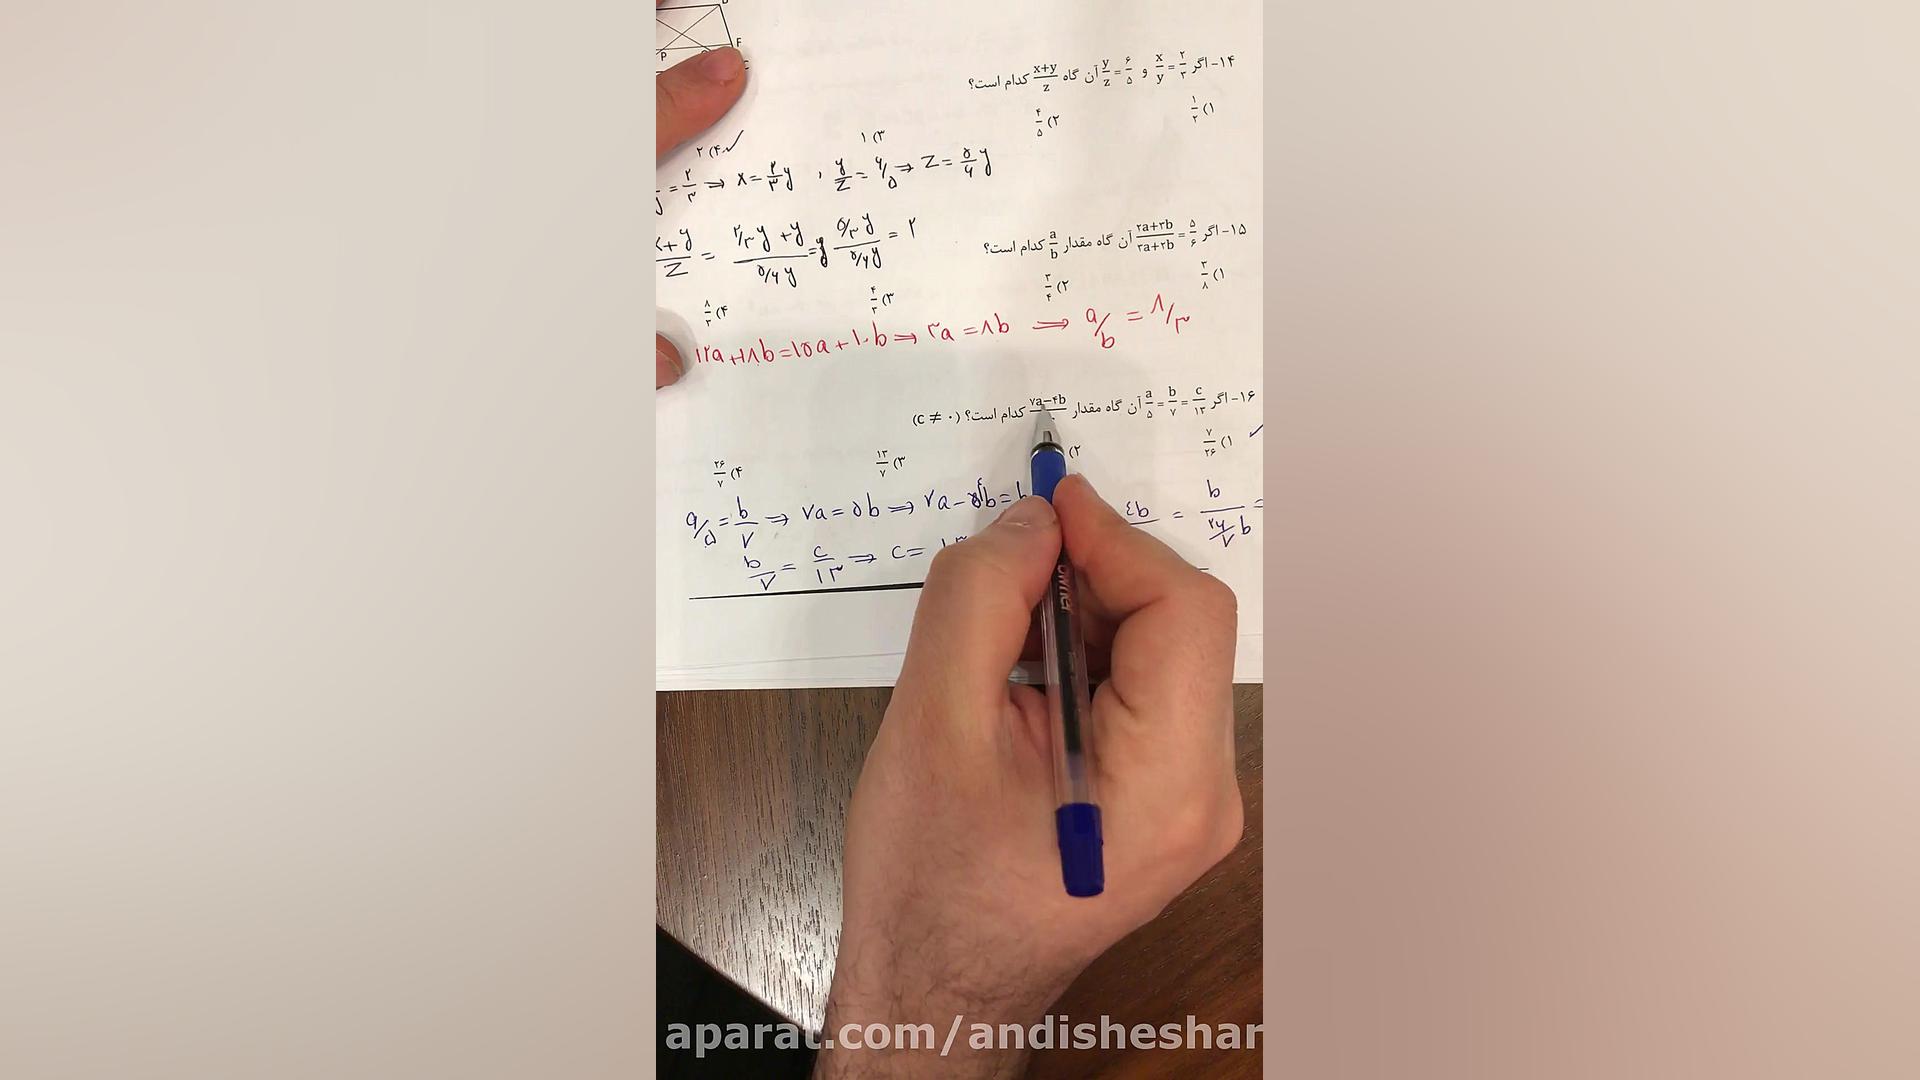 F
P
۱۴- اگر x/y = ۲/۳ و y/z = ۶/۵ آن گاه (x+y)/z کدام است؟
۱) ۱/۲
۲) ۴/۵
۳) ۱
۴) ۲ ✓
= ۲/۳ ⇒ x = ۲/۳ y , y/z = ۶/۵ ⇒ z = ۵/۶ y
x+y/z = (۲/۳ y + y)/(۵/۶ y) = (۵/۳ y)/(۵/۶ y) = ۲
۱۵- اگر (۲a+۳b)/(۳a+۲b) = ۵/۶ آن گاه مقدار a/b کدام است؟
۱) ۳/۸
۲) ۳/۴
۳) ۴/۳
۴) ۸/۳
۱۲a+۱۸b=۱۵a+۱۰b ⇒ ۳a=۸b ⇒ a/b = ۸/۳
۱۶- اگر a/۵ = b/۷ = c/۱۳ آن گاه مقدار ۷a-۴b کدام است؟ (c ≠ ۰)
۱) ۷/۲۶ ✓
۲)
۳) ۱۳/۷
۴) ۲۶/۷
a/۵ = b/۷ ⇒ ۷a = ۵b ⇒ ۷a - ۴b = b
= b/(۲۶/۷ b) =
b/۷ = c/۱۳ ⇒ c =
owner
aparat.com/andisheshar